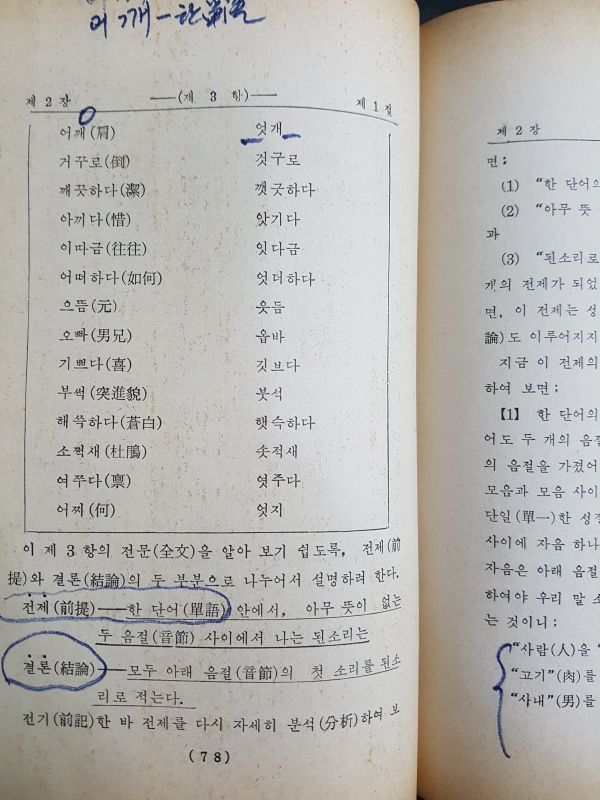 어깨 - 한
제 2 장 ——(제 3 항)—— 제 1 절
어깨(肩) 엇개
거꾸로(倒) 것구로
깨끗하다(潔) 깻긋하다
아끼다(惜) 앗기다
이따금(往往) 잇다금
어떠하다(如何) 엇더하다
으뜸(元) 읏듬
오빠(男兄) 옵바
기쁘다(喜) 깃브다
부썩(突進貌) 붓석
해쓱하다(蒼白) 햇슥하다
소쩍새(杜鵑) 솟적새
여쭈다(禀) 엿주다
어찌(何) 엇지
이 제 3 항의 전문(全文)을 알아 보기 쉽도록, 전제(前
提)와 결론(結論)의 두 부분으로 나누어서 설명하려 한다.
전제(前提)——한 단어(單語) 안에서, 아무 뜻이 없는
두 음절(音節) 사이에서 나는 된소리는
결론(結論)——모두 아래 음절(音節)의 첫 소리를 된소
리로 적는다.
전기(前記)한 바 전제를 다시 자세히 분석(分析)하여 보
(78)
제 2 장
면;
(1) “한 단어의
(2) “아무 뜻
과
(3) “된소리로
개의 전제가 되었
면, 이 전제는 성
論)도 이루어지지
지금 이 전제의
하여 보면;
【1】 한 단어의
어도 두 개의 음절
의 음절을 가졌어
모음과 모음 사이
단일(單一)한 성절
사이에 자음 하나
자음은 아래 음절
하여야 우리 말 소
는 것이니;
“사람(人)을 “
“고기”(肉)를
“사내”(男)를